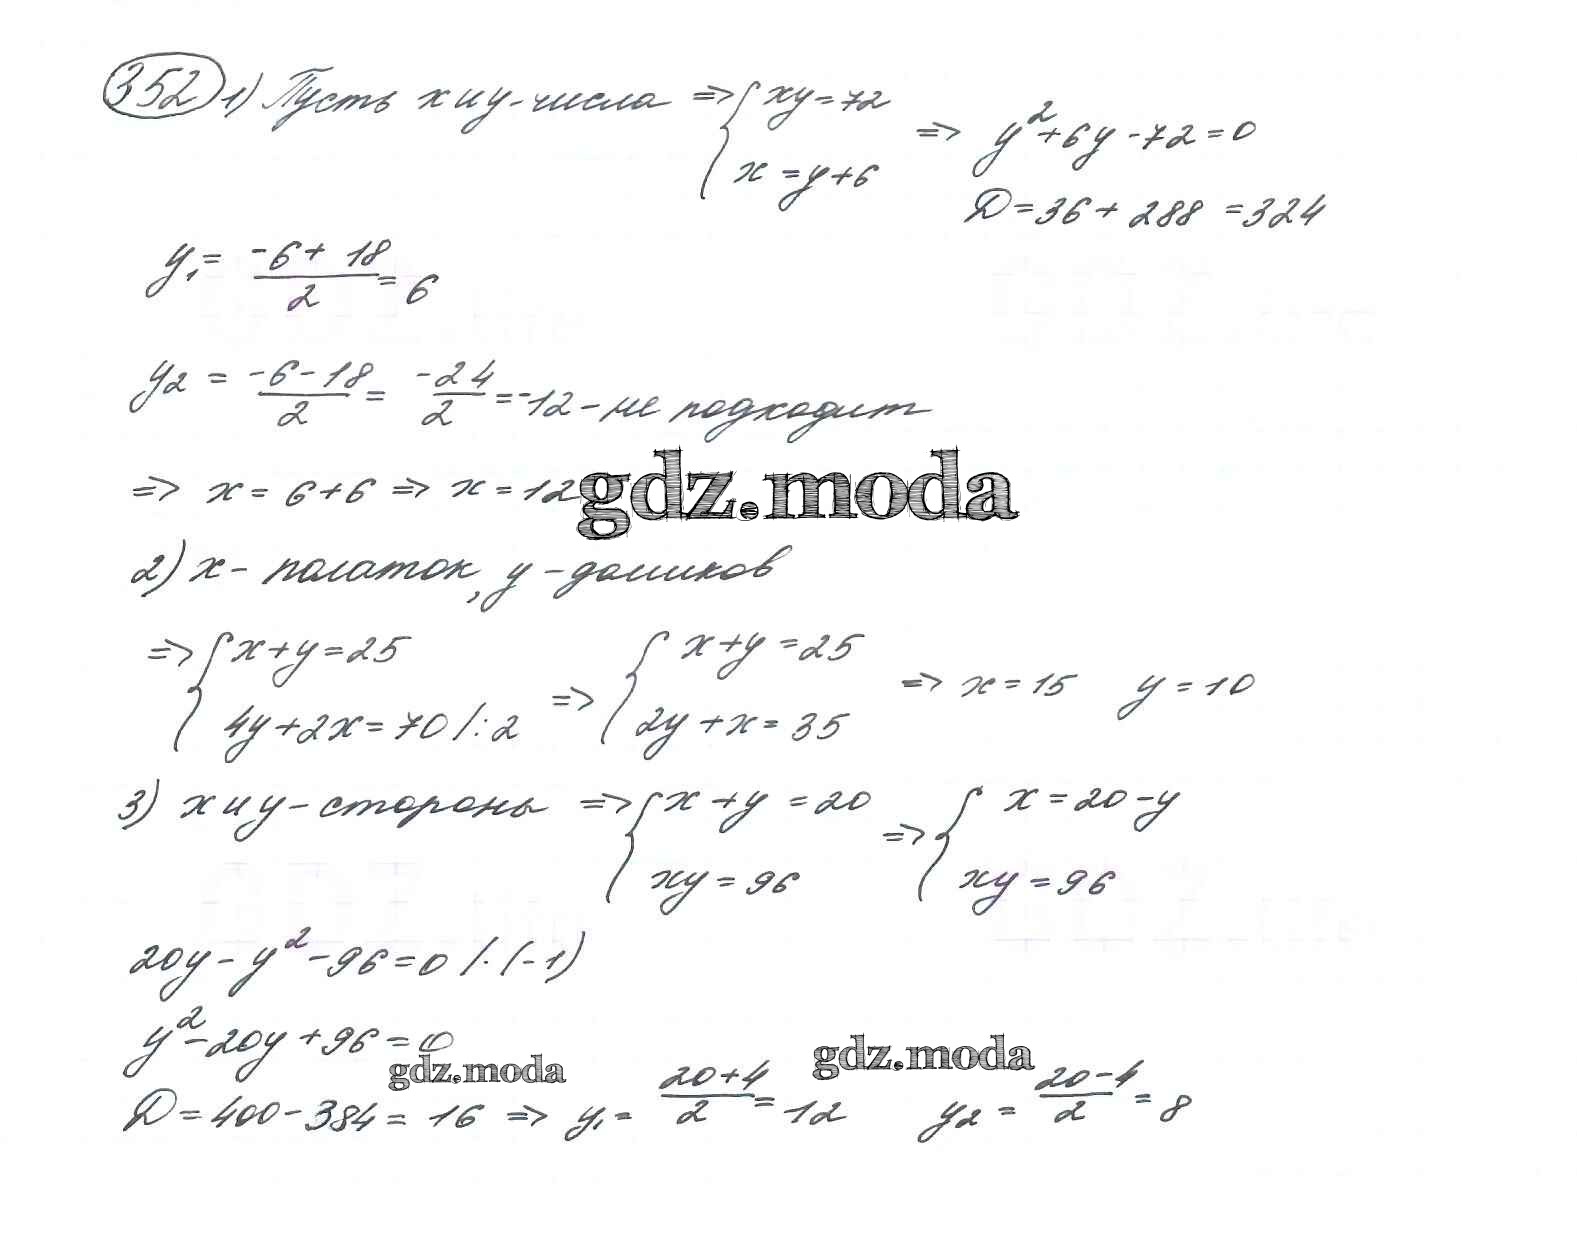 352 1) Пусть x и y - числа => { xy = 72
x = y + 6 => y² + 6y - 72 = 0
D = 36 + 288 = 324
y₁ = (-6 + 18)/2 = 6
y₂ = (-6 - 18)/2 = -24/2 = -12 - не подходит
=> x = 6 + 6 => x = 12
gdz.moda
2) x - палаток, y - домиков
=> { x + y = 25
4y + 2x = 70 /: 2 => { x + y = 25
2y + x = 35 => x = 15 y = 10
3) x и y - стороны => { x + y = 20
xy = 96 => { x = 20 - y
xy = 96
20y - y² - 96 = 0 /· (-1)
y² - 20y + 96 = 0
gdz.moda
gdz.moda
D = 400 - 384 = 16 => y₁ = (20 + 4)/2 = 12 y₂ = (20 - 4)/2 = 8